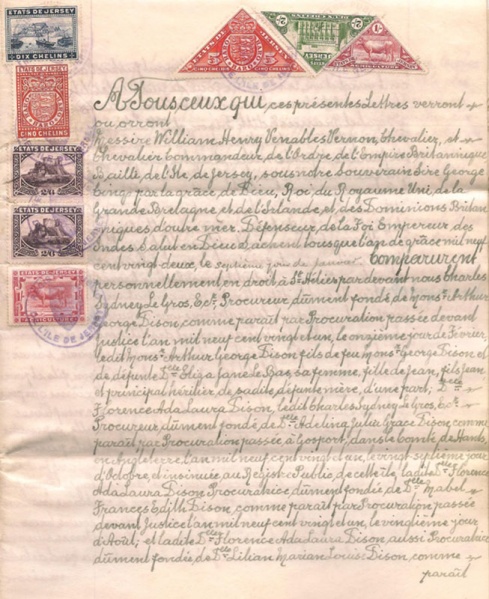 ETATS DE JERSEY
DIX CHELINS
CINQ CHELINS
ETATS DE JERSEY
2/6
ETATS DE JERSEY
2/6
ETATS DE JERSEY
AGRICULTURE
ILE DE JERSEY
ETATS DE JERSEY
5
5
CINQ CHELINS
CINQ CHELINS
2/-
2/-
1/-
A Tous ceux qui, ces présentes Lettres verront
ou orront
Messire William Henry Venables Vernon, Chevalier, et
Chevalier Commandeur de l'Ordre de l'Empire Britannique
Bailli de l'Ile de Jersey, sous notre Souverain Sire George
Cinq par la grâce de Dieu, Roi du Royaume Uni, de la
Grande Bretagne, et de l'Irlande et des Dominions Britan
niques d'outre mer, Défenseur, de la Foi Empereur, des
Indes, Salut en Dieu Sachent tous que l'an de grâce mil neuf
cent vingt deux, le septième jour de janvier Comparurent
personnellement en droit à St Hélier par devant nous Charles
Sydney Le Gros, Ecr. Procureur dûment fondé de Monsr Arthur
George Dison, comme paraît par Procuration passée devant
Justice l'an mil neuf cent vingt et un, le onzième jour de Février
ledit Monsr Arthur George Dison fils de feu Monsr George Dison et
de défunte Dme Eliza Jane Le Bas, sa femme, fille de Jean, fils Jean
et principal héritier de sadite défunte mère, d'une part; Dlle
Florence Ada Laura Dison, ledit Charles Sydney Le Gros, Ecr.
Procureur dûment fondé de Dlle Adelina Julia Grace Dison, comme
paraît par Procuration passée à Gosport, dans le Comté de Hants,
en Angleterre l'an mil neuf cent vingt et un, le vingt septième jour
d'Octobre, d'insinuée au Registre Public de cette Ile, ladite Dlle Florence
Ada Laura Dison, Procuratrice dûment fondée de Dlle Mabel
Frances Edith Dison, comme paraît par Procuration passée
devant Justice l'an mil neuf cent vingt et un, le vingtième jour
d'Août; et ladite Dlle Florence Ada Laura Dison, aussi Procuratrice
dûment fondée de Dlle Lilian Marian Louise Dison, comme
paraît